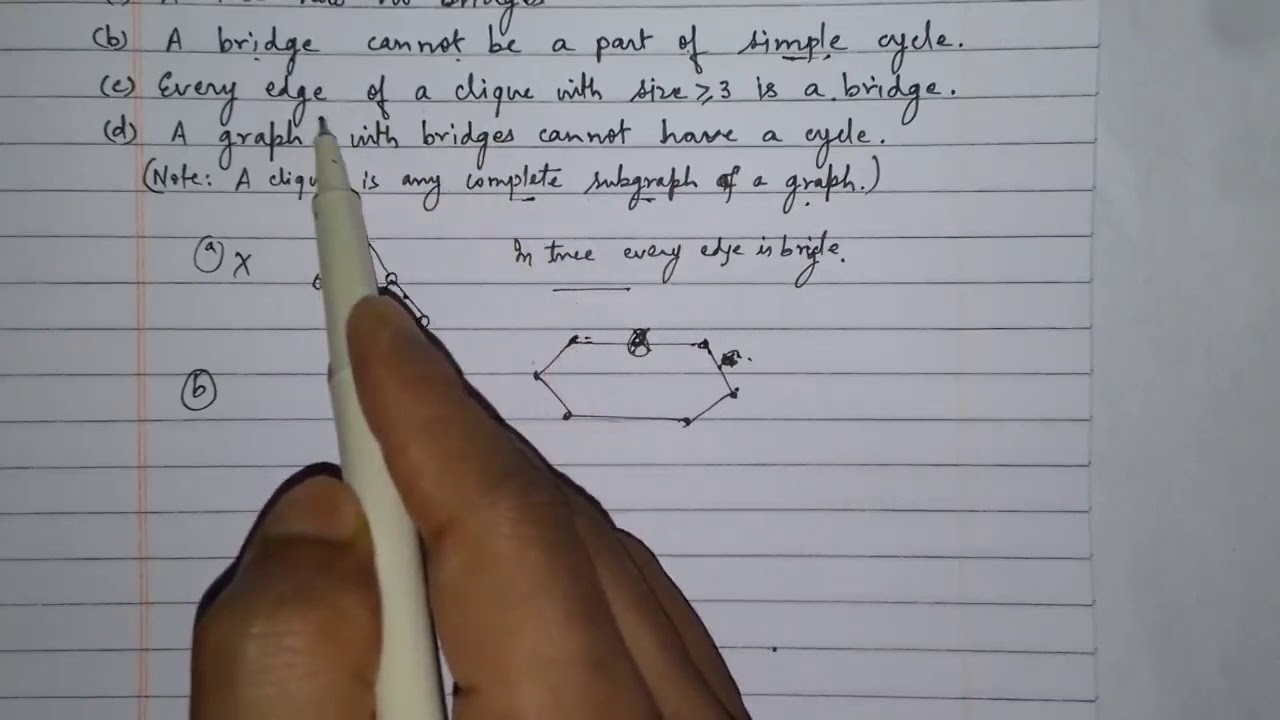 (b) A bridge cannot be a part of simple cycle.
(c) Every edge of a clique with size ≥ 3 is a bridge.
(d) A graph with bridges cannot have a cycle.
(Note: A cliqu is any complete subgraph of a graph.)
(a) X In tree every edge is bridge.
(b)